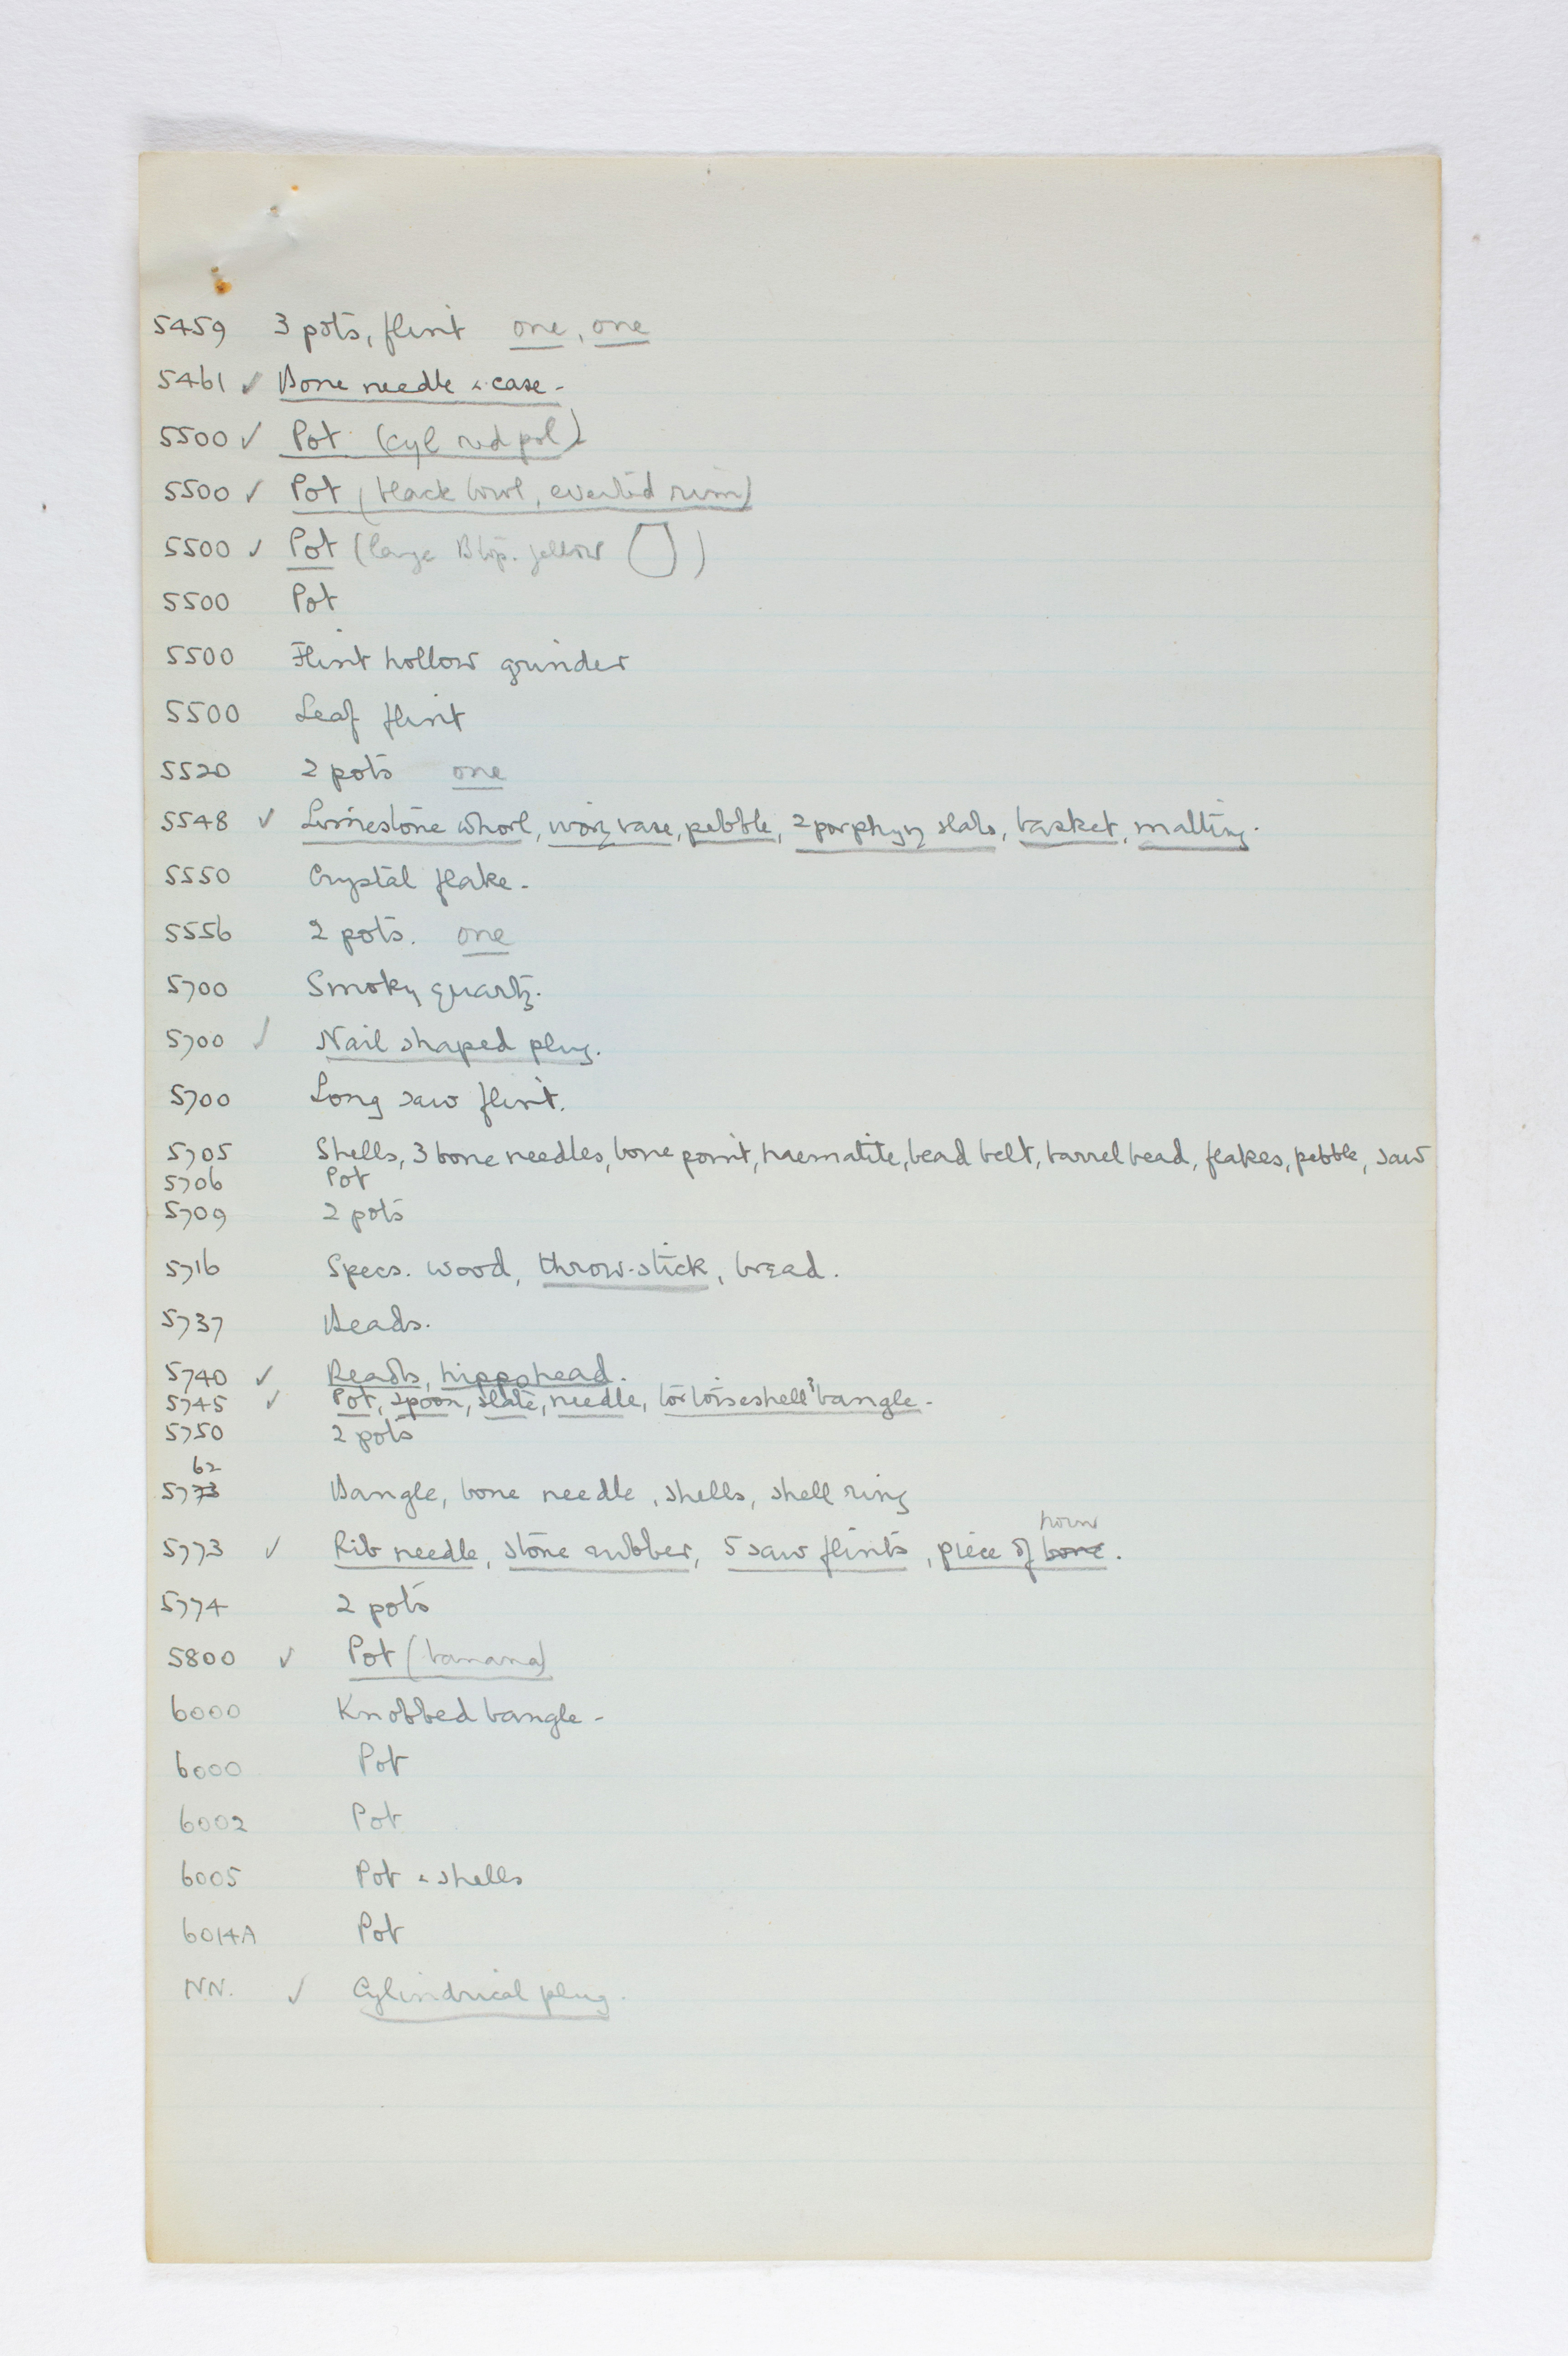 5459 3 pots, flint one, one
5461 ✓ Bone needle & case -
5500 ✓ Pot (cyl red pol)
5500 ✓ Pot (black bowl, everted rim)
5500 ✓ Pot (large Btop. yellow )
5500 Pot
5500 Flint hollow grinder
5500 Leaf flint
5520 2 pots one
5548 ✓ Limestone whorl, ivory vase, pebble, 2 porphyry slabs, basket, matting.
5550 Crystal flake -
5556 2 pots. one
5700 Smoky quartz.
5700 ✓ Nail shaped plug.
5700 Long saw flint.
5705 Shells, 3 bone needles, bone point, haematite, bead belt, barrel bead, flakes, pebble, saw
5706 Pot
5709 2 pots
5716 Specs. wood, throw-stick, bread.
5737 Beads.
5740 ✓ Beads, hippo head.
5745 ✓ Pot, spoon, slate, needle, tortoiseshell? bangle -
5750 2 pots
62
5773 Bangle, bone needle, shells, shell ring
horn
5773 ✓ Rib needle, stone rubber, 5 saw flints, piece of bone.
5774 2 pots
5800 ✓ Pot (banana)
6000 Knobbed bangle -
6000 Pot
6002 Pot
6005 Pot & shells
6014A Pot
NN. ✓ Cylindrical plug.